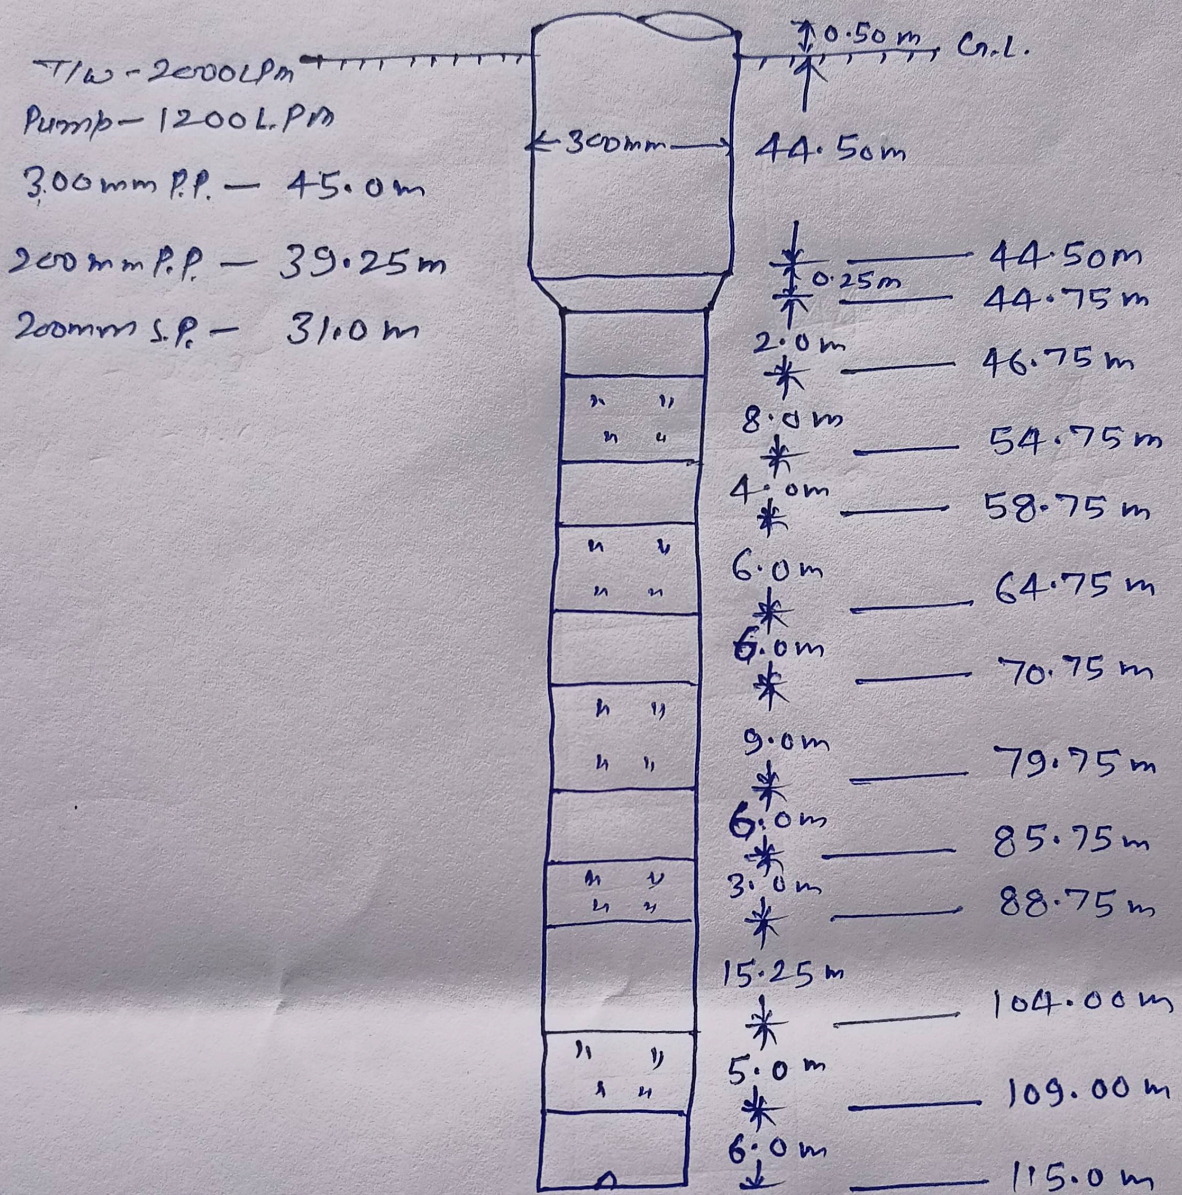 0.50m G.L.
T/W - 2000LPM
Pump - 1200 L.PM
300mm 44.50m
300mm P.P. - 45.0m
200mm P.P. - 39.25m
200mm S.P. - 31.0 m
44.50m
0.25m
44.75m
2.0m
46.75m
8.0m
54.75m
4.0m
58.75m
6.0m
64.75m
6.0m
70.75m
9.0m
79.75m
6.0m
85.75m
3.0m
88.75m
15.25m
104.00m
5.0m
109.00m
6.0m
115.0m